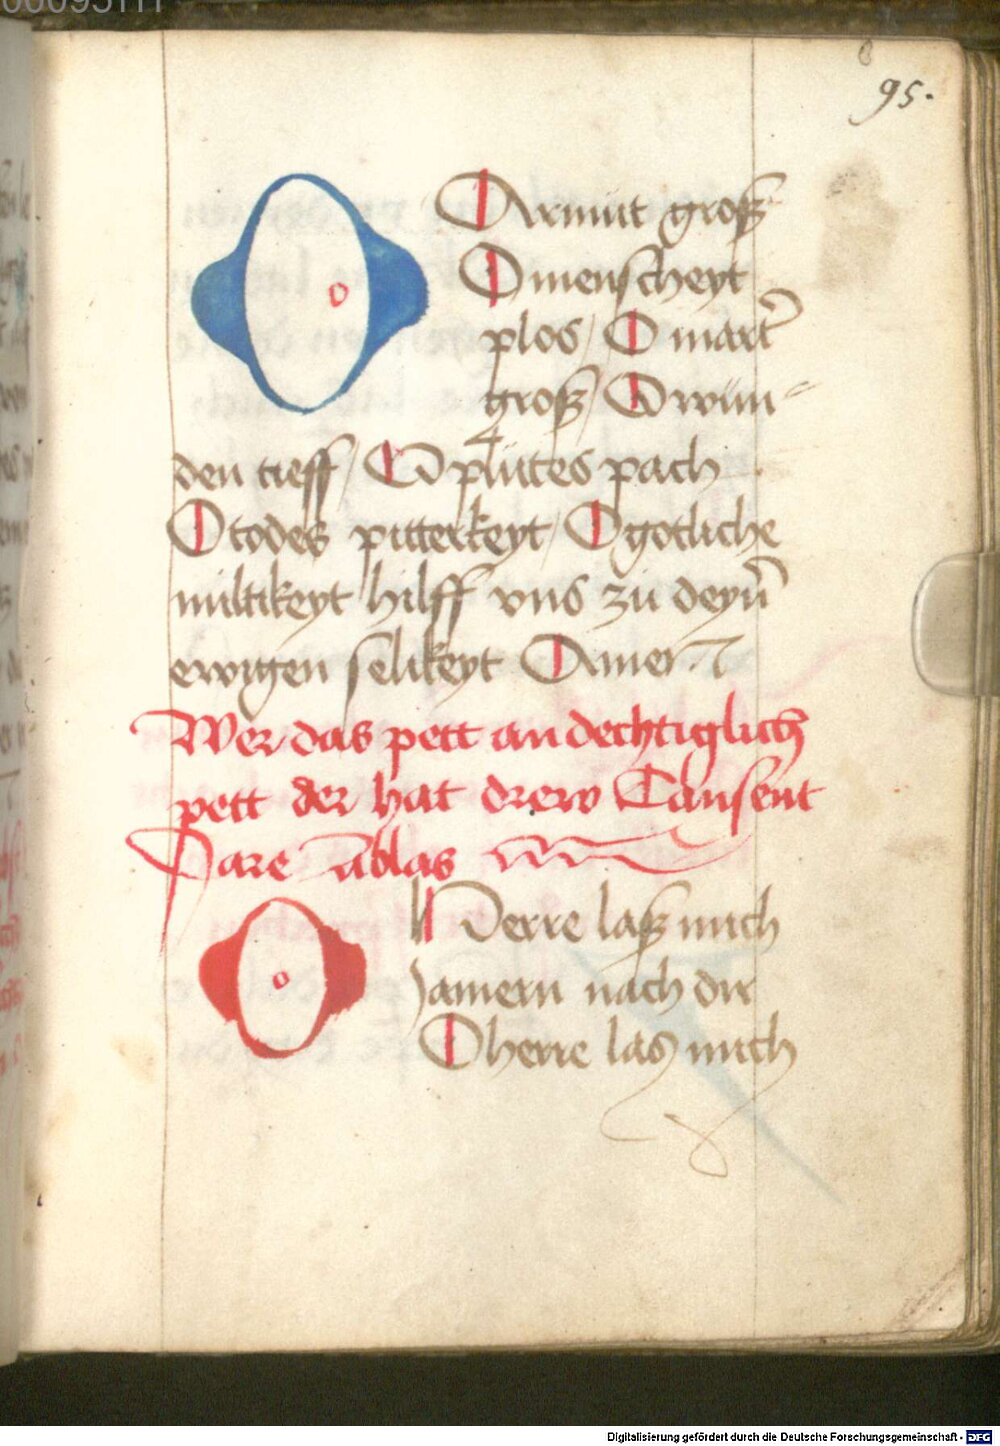 95.
O Armut groß
O menscheyt
plos / O mart͛
groß / O wun-
den tieff / O plutes pach
O todes pitterkeyt / O gotliche
miltikeyt hilff vns zu deyn̄
ewigen selikeyt Amen
Wer das pett an dechtiglich
pett der hat drew Tausent
Jare ablas
O Herre laß mich
Jamern nach dir
O herre las mich
Digitalisierung gefördert durch die Deutsche Forschungsgemeinschaft - DFG